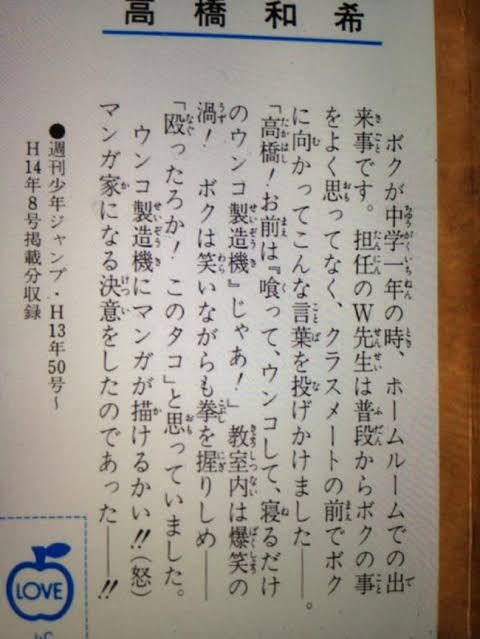 高橋和希
ボクが中学一年の時、ホームルームでの出
来事です。担任のW先生は普段からボクの事
をよく思ってなく、クラスメートの前でボク
に向かってこんな言葉を投げかけました――。
「高橋！お前は『喰って、ウンコして、寝るだけ
のウンコ製造機』じゃあ！」教室内は爆笑の
渦！　ボクは笑いながらも拳を握りしめ――
「殴ったろか！このタコ」と思っていました。
ウンコ製造機にマンガが描けるかい!!（怒）
マンガ家になる決意をしたのであった――!!
●週刊少年ジャンプ・H13年50号〜
H14年8号掲載分収録
LOVE